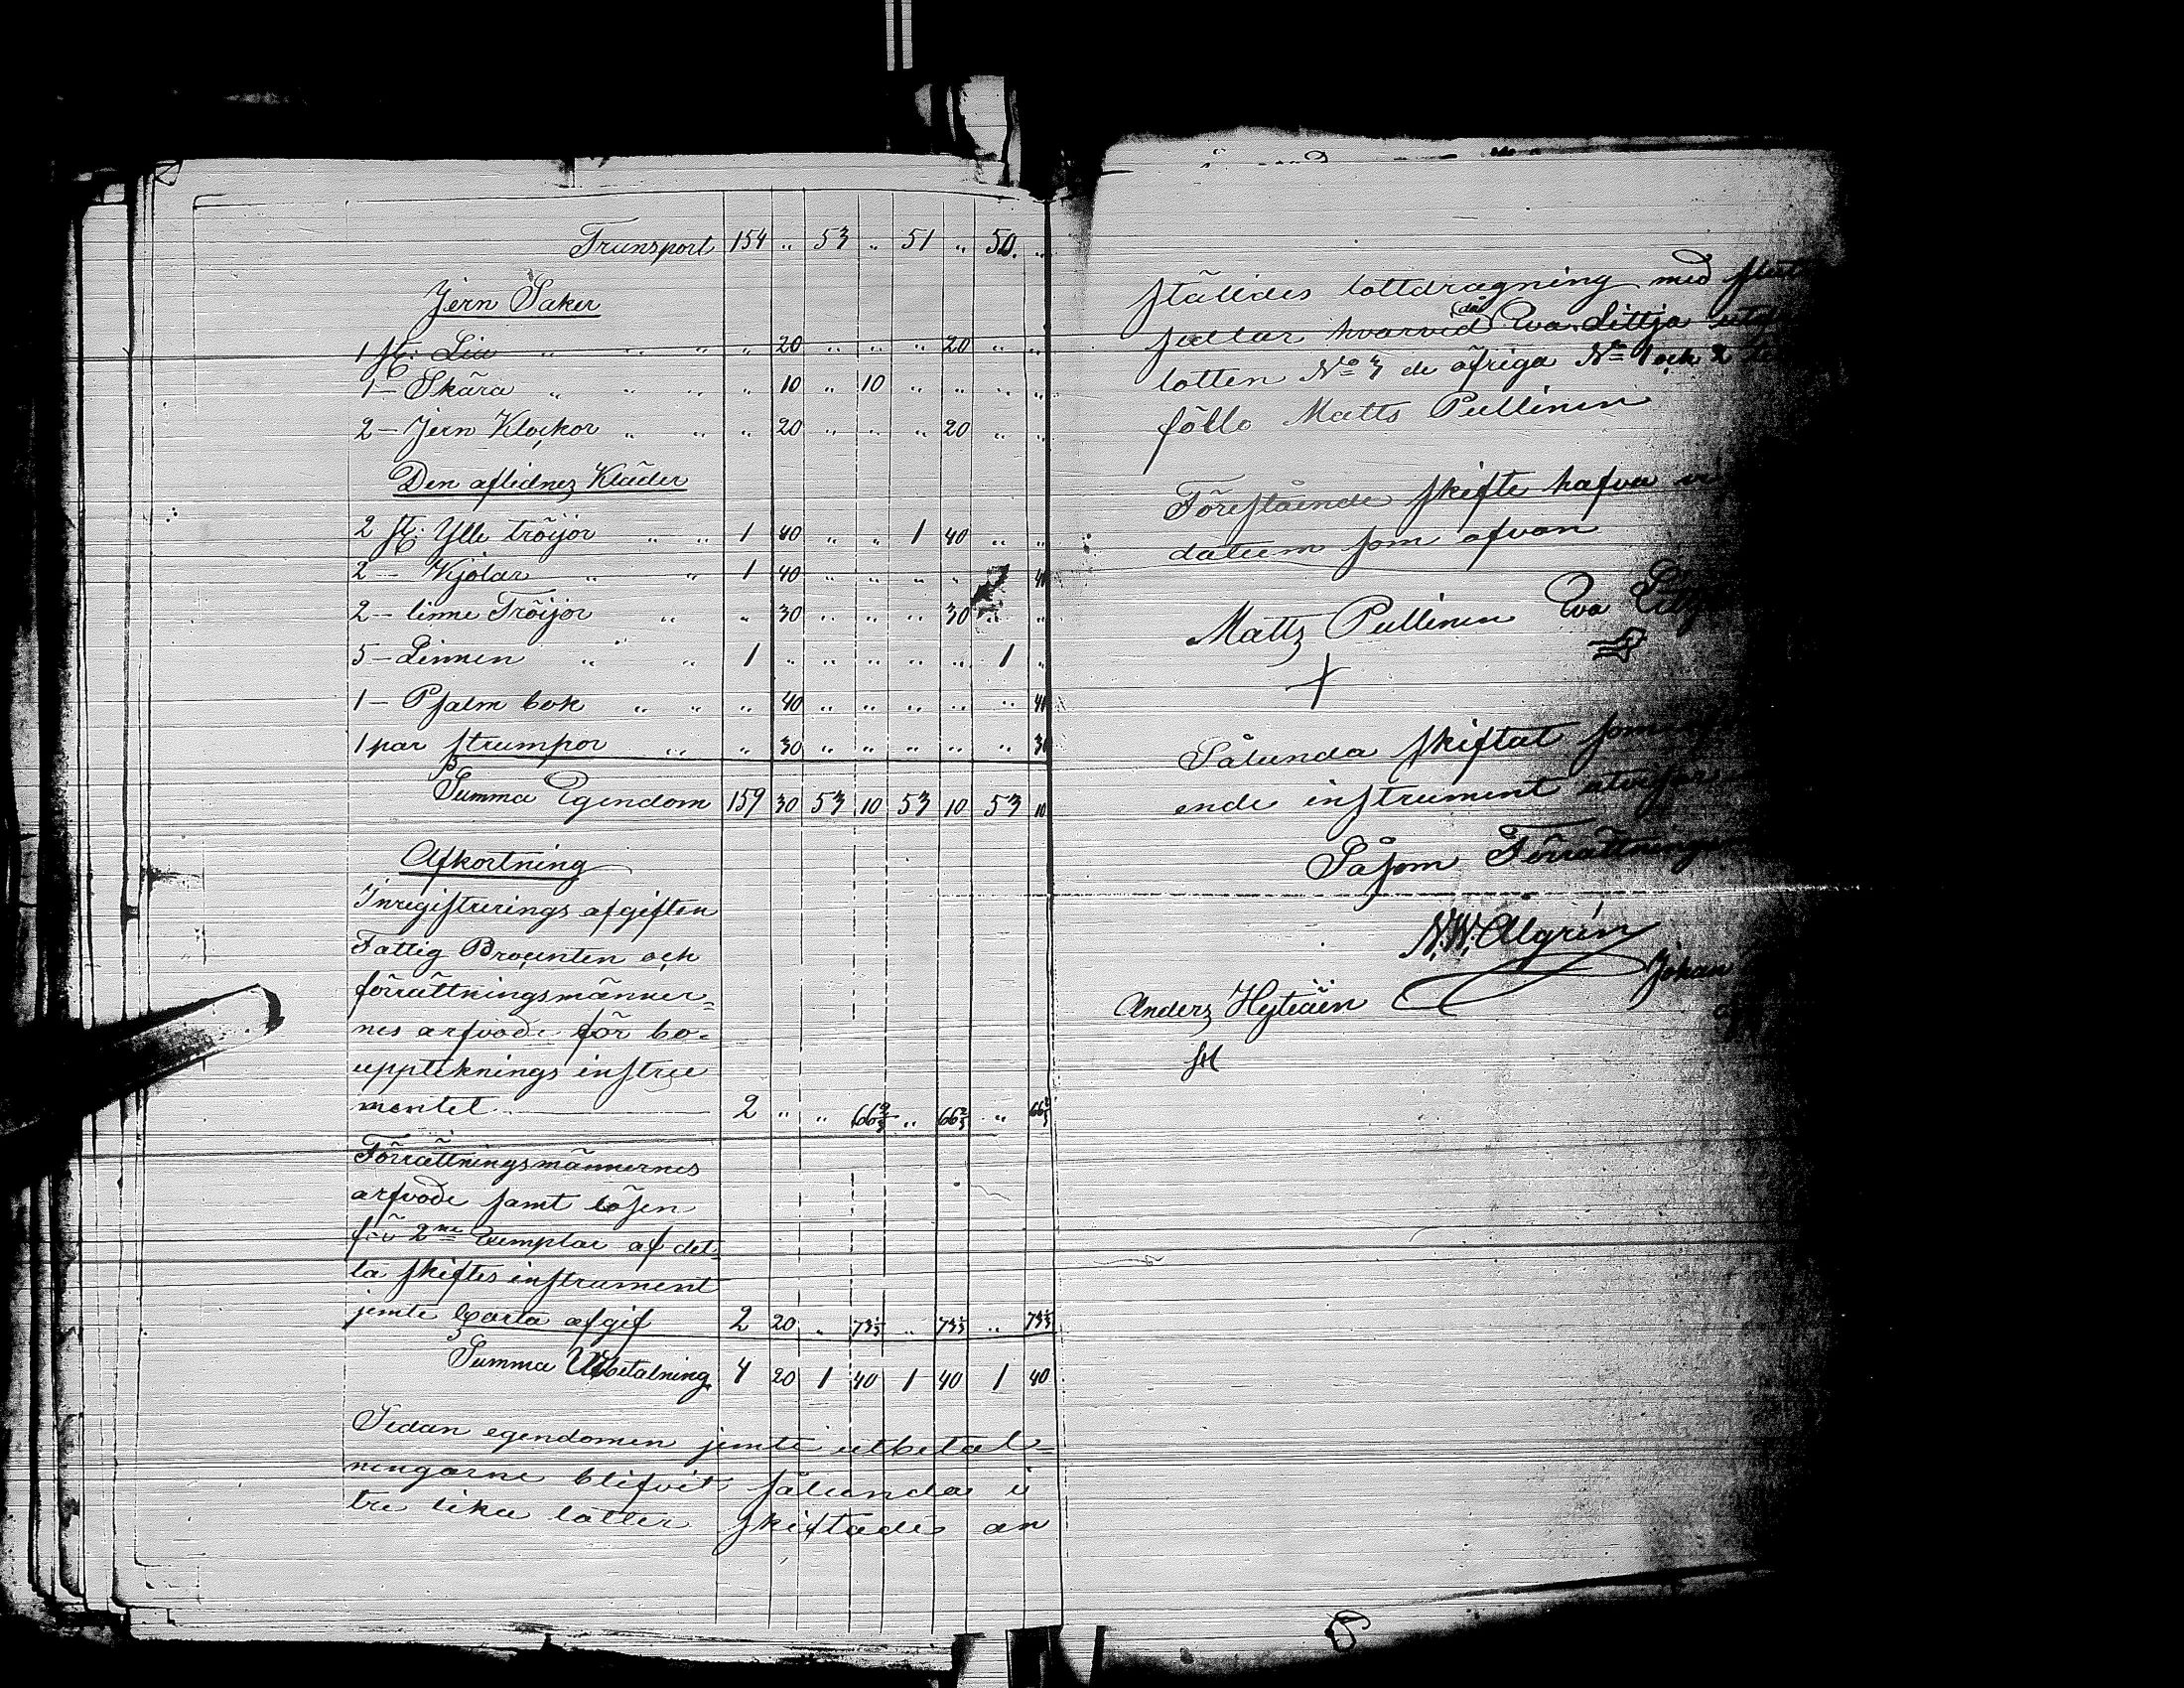 Transport 154 " 53 " 51 " 50. "
Jern Saker
1 st: Lia " " " " 20 " " " 20 " "
1 – Skära " " " " 10 " 10 " " " "
2 – Jern Klockor " " " 20 " " " 20 " "
Den aflidnes Kläder
2 st: Ylle tröijor " " 1 40 " " 1 40 " "
2 – Kjolar " " 1 40 " " " " 1 40
2 – linne Tröijor " " 30 " " " 30 " "
5 – Linnen " " 1 " " " " " 1 "
1 – Psalm bok " " " 40 " " " " " 40
1 par strumpor " " 30 " " " " " 30
Summa Egendom 159 30 53 10 53 10 53 10
Afkortning
Inregistrerings afgiften
Fattig Procenten och
förrättningsmänner=
nes arfvode för bo-
uppteknings instru
mentet 2 " " 66 2/3 " 66 2/3 " 66 2/3
Förrättningsmännernes
arfvode samt lösen
för 2ne Exemplar af det
ta skiftes instrument
jemte Carta afgif 2 20 " 73 1/3 " 73 1/3 " 73 1/3
Summa Utbetalning 4 20 1 40 1 40 1 40
Sedan egendomen jemte utbetal=
ningarne blifvit sålunda i
tre lika lotter skiftades an
ställdes lottdragning med
sedlar hvarvid (då) Eva Littja
lotten No 3 de öfriga No 1 och 2
föllo Matts Pullinen
Förestående skifte hafva vi
datum som ofvan
Matts Pullinen Eva
Sålunda skiftat som
ende instrument utvisar
Såsom Förrättningsm
N.W. Algrén
Johan
Anders Hyteäin